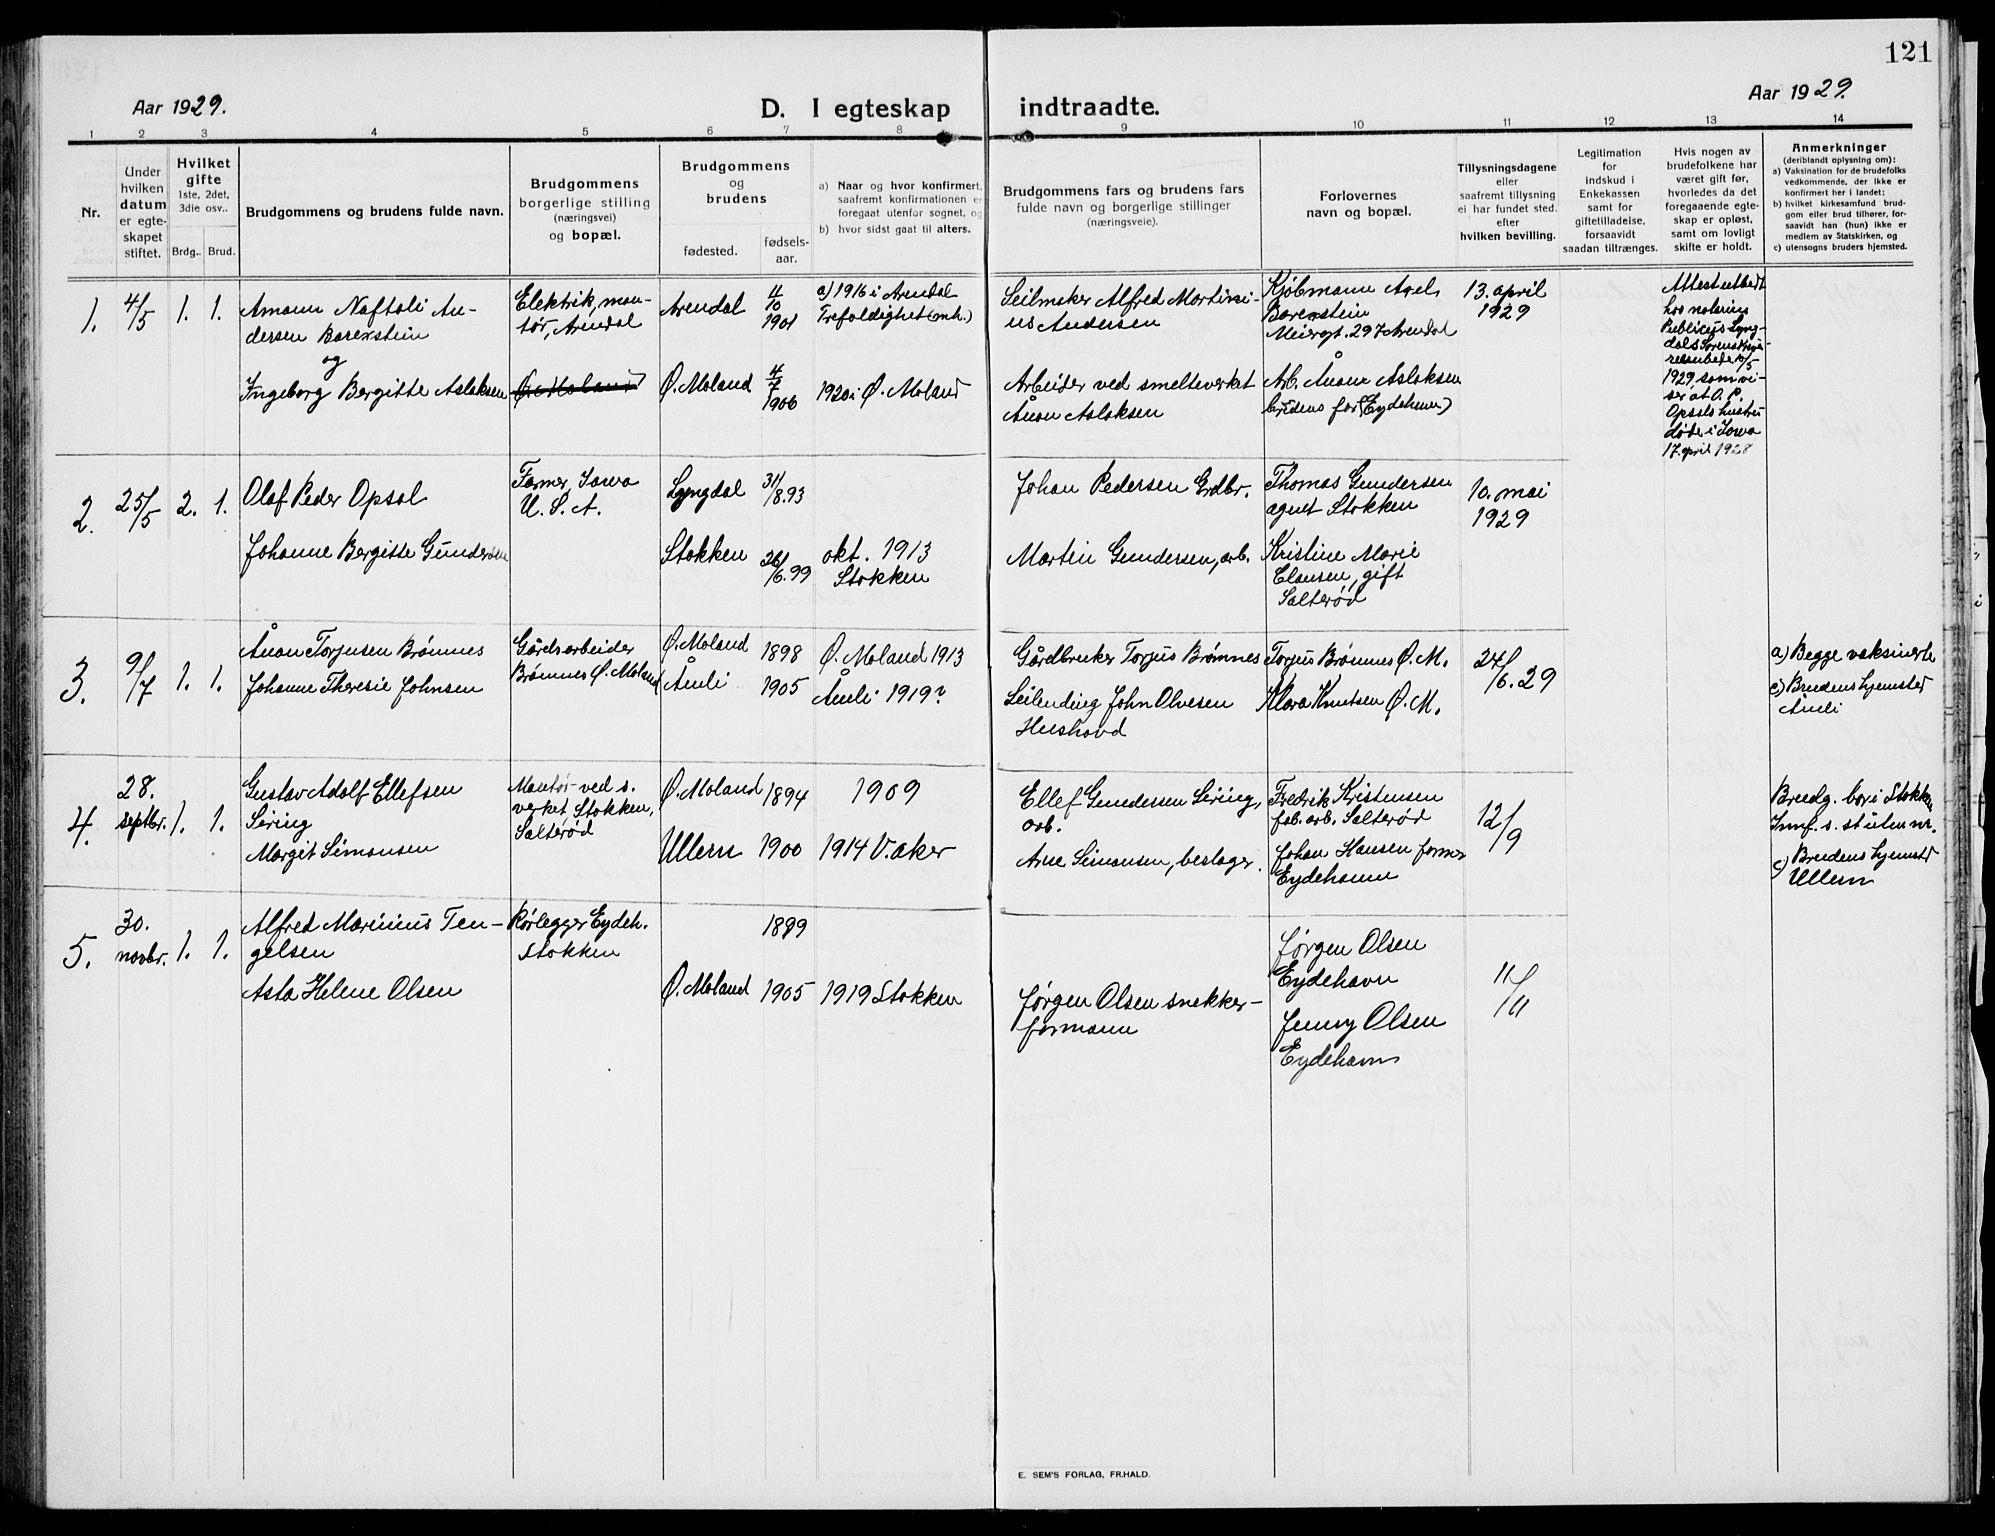 121
Aar 1929.
D. I egteskap indtraadte.
Aar 1929.
1 2 3 4 5 6 7 8 9 10 11 12 13 14
Nr.
Under
hvilken
datum
er egte-
skapet
stiftet.
Hvilket
gifte
1ste, 2det,
3die osv..
Brdg.. Brud.
Brudgommens og brudens fulde navn.
Brudgommens
borgerlige stilling
(næringsvei)
og bopæl.
Brudgommens
og
brudens
fødested.
fødsels-
aar.
a) Naar og hvor konfirmert,
saafremt konfirmationen er
foregaat utenfor sognet, og
b) hvor sidst gaat til alters.
Brudgommens fars og brudens fars
fulde navn og borgerlige stillinger
(næringsveie).
Forlovernes
navn og bopæl.
Tillysningsdagene
eller
saafremt tillysning
ei har fundet sted.
efter
hvilken bevilling.
Legitimation
for
indskud i
Enkekassen
samt for
giftetilladelse,
forsaavidt
saadan tiltrænges.
Hvis nogen av
brudefolkene har
været gift før,
hvorledes da det
foregaaende egte-
skap er opløst,
samt om lovligt
skifte er holdt.
Anmerkninger
(deriblandt oplysning om):
a) Vaksination for de brudefolks
vedkommende, der ikke er
konfirmert her i landet;
b) hvilket kirkesamfund brud-
gom eller brud tilhører, for-
saavidt han (hun) ikke er
medlem av Statskirken, og
c) utensogns bruders hjemsted.
1.
4/5
1. 1.
Amann Naftali An-
dersen Barexstein
og
Ingeborg Bergitte Aslaksen
Elektrik, mon-
tør, Arendal
Ø. Moland
Arendal
11/10
1901
a) 1916 i Arendal
Trefoldighet (mh.)
Ø. Moland
4/7
1906
1920 i Ø. Moland
Seilmaker Alfred Martini-
us Andersen
Arbeider ved smelteverket
Ånon Aslaksen
Kjøbmann Axel
Barexstein
Meiergt. 297 Arendal
Arb. Ånon Aslaksen
brudens far (Eydehavn)
13. april
1929
Attest utstedt
hos notarius
Publicus Lyng-
dals Sorenskri-
1929, som vi-
ser at O. P.
Opsals hustru
døde i Iowa
17. april 1928
2.
25/5
2. 1.
Olaf Peder Opsal
Johanne Bergitte Gundersen
Farmer, Iowa
U. S. A.
Lyngdal
31/8.93
Stokken
26/6.99
okt. 1913
Stokken
Johan Pedersen Grdbr.
Martin Gundersen, arb.
Thomas Gundersen
agent Stokken
Kristine Marie
Clausen, gift
Salterød
10. mai
1929
3.
9/7
1. 1.
Ånon Torjusen Brømnes
Johanne Theresie Johnsen
Gårdsarbeider
Brømnes Ø. Moland
Ø. Moland 1898 Ø. Moland 1913
Åmli 1905 Åmli 1919?
Gårdbruker Torjus Brømnes
Leilending John Olvesen
Hushovd
Torjus Brømnes Ø. M.
Klara Knutsen Ø. M.
24/6.29
a) Begge vaksinerte
c) Brudens hjemsted
Åmli
4.
28.
septbr.
1. 1.
Gustav Adolf Ellefsen
Sering
Margit Simonsen
Montør ved s.
verket, Stokken,
Salterød
Ø. Moland 1894 1909
Ullern 1900 1914 V. Aker
Ellef Gundersen Sering,
arb.
Arne Simonsen, beslager.
Fredrik Kristensen
fab. arb. Salterød
Johan Hansen former
Eydehavn
12/9
Brudg. bor i Stokken
Innf. s. st uten nr.
c) Brudens hjemsted
Ullern
5.
30.
novbr.
1. 1.
Alfred Marinius Ten-
gelsen
Asta Helene Olsen
Rørlegger Eydeh.
Stokken
1899
Ø. Moland 1905 1919 Stokken
Jørgen Olsen snekker-
formann
Jørgen Olsen
Eydehavn
Jenny Olsen
Eydehavn
11/11
E. SEM'S FORLAG, FR.HALD.